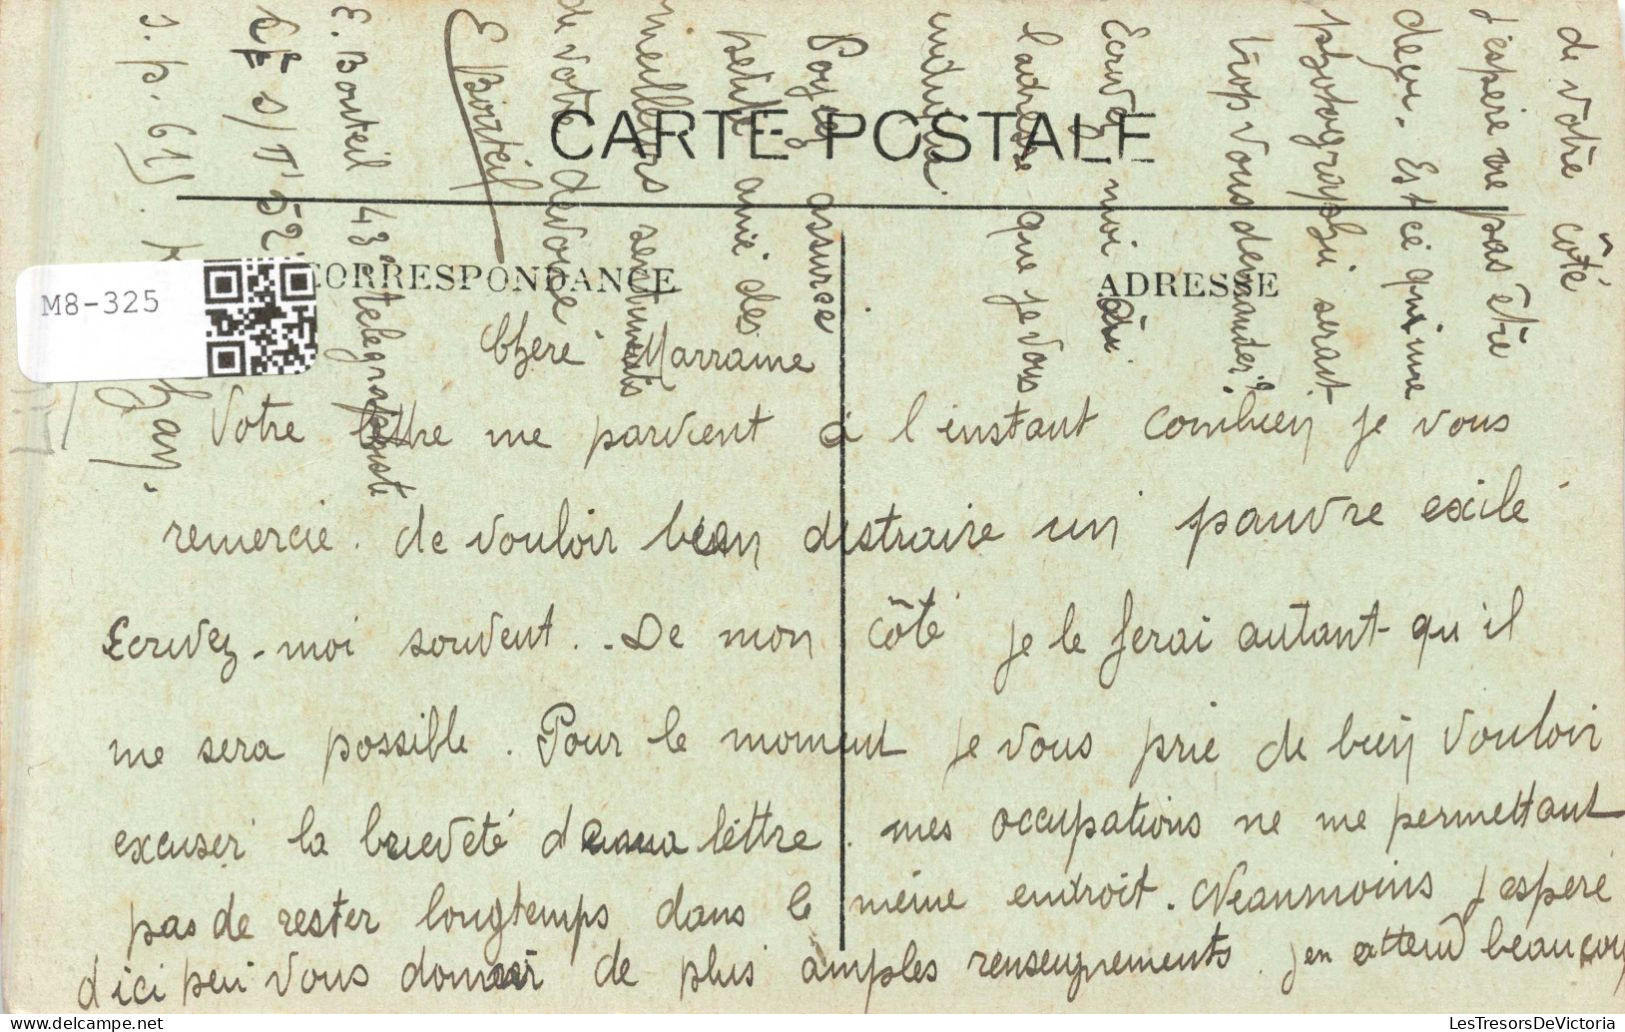 CARTE POSTALE
CORRESPONDANCE
ADRESSE
M8-325
Chère Marraine
Votre lettre me parvient à l'instant Combien je vous
remercie. de vouloir bien distraire un pauvre exilé
Ecrivez-moi souvent. - De mon côté je le ferai autant qu'il
me sera possible. Pour le moment je vous prie de bien vouloir
excuser la brieveté de ma lettre. mes occupations ne me permettant
pas de rester longtemps dans le même endroit. Néanmoins j'espère
d'ici peu vous donner de plus amples renseignements. J'en attend beaucoup
de votre côté
j'espère ne pas être
deçu. Est ce qu'une
photographie serait
trop vous demander?
Ecrivez moi à
l'adresse que je vous
indique.
Soyez assurée
petite amie des
meilleurs sentiments
de votre dévoué
E Bouteil
E. Bouteil 43e telegraphiste
s. p. 611.